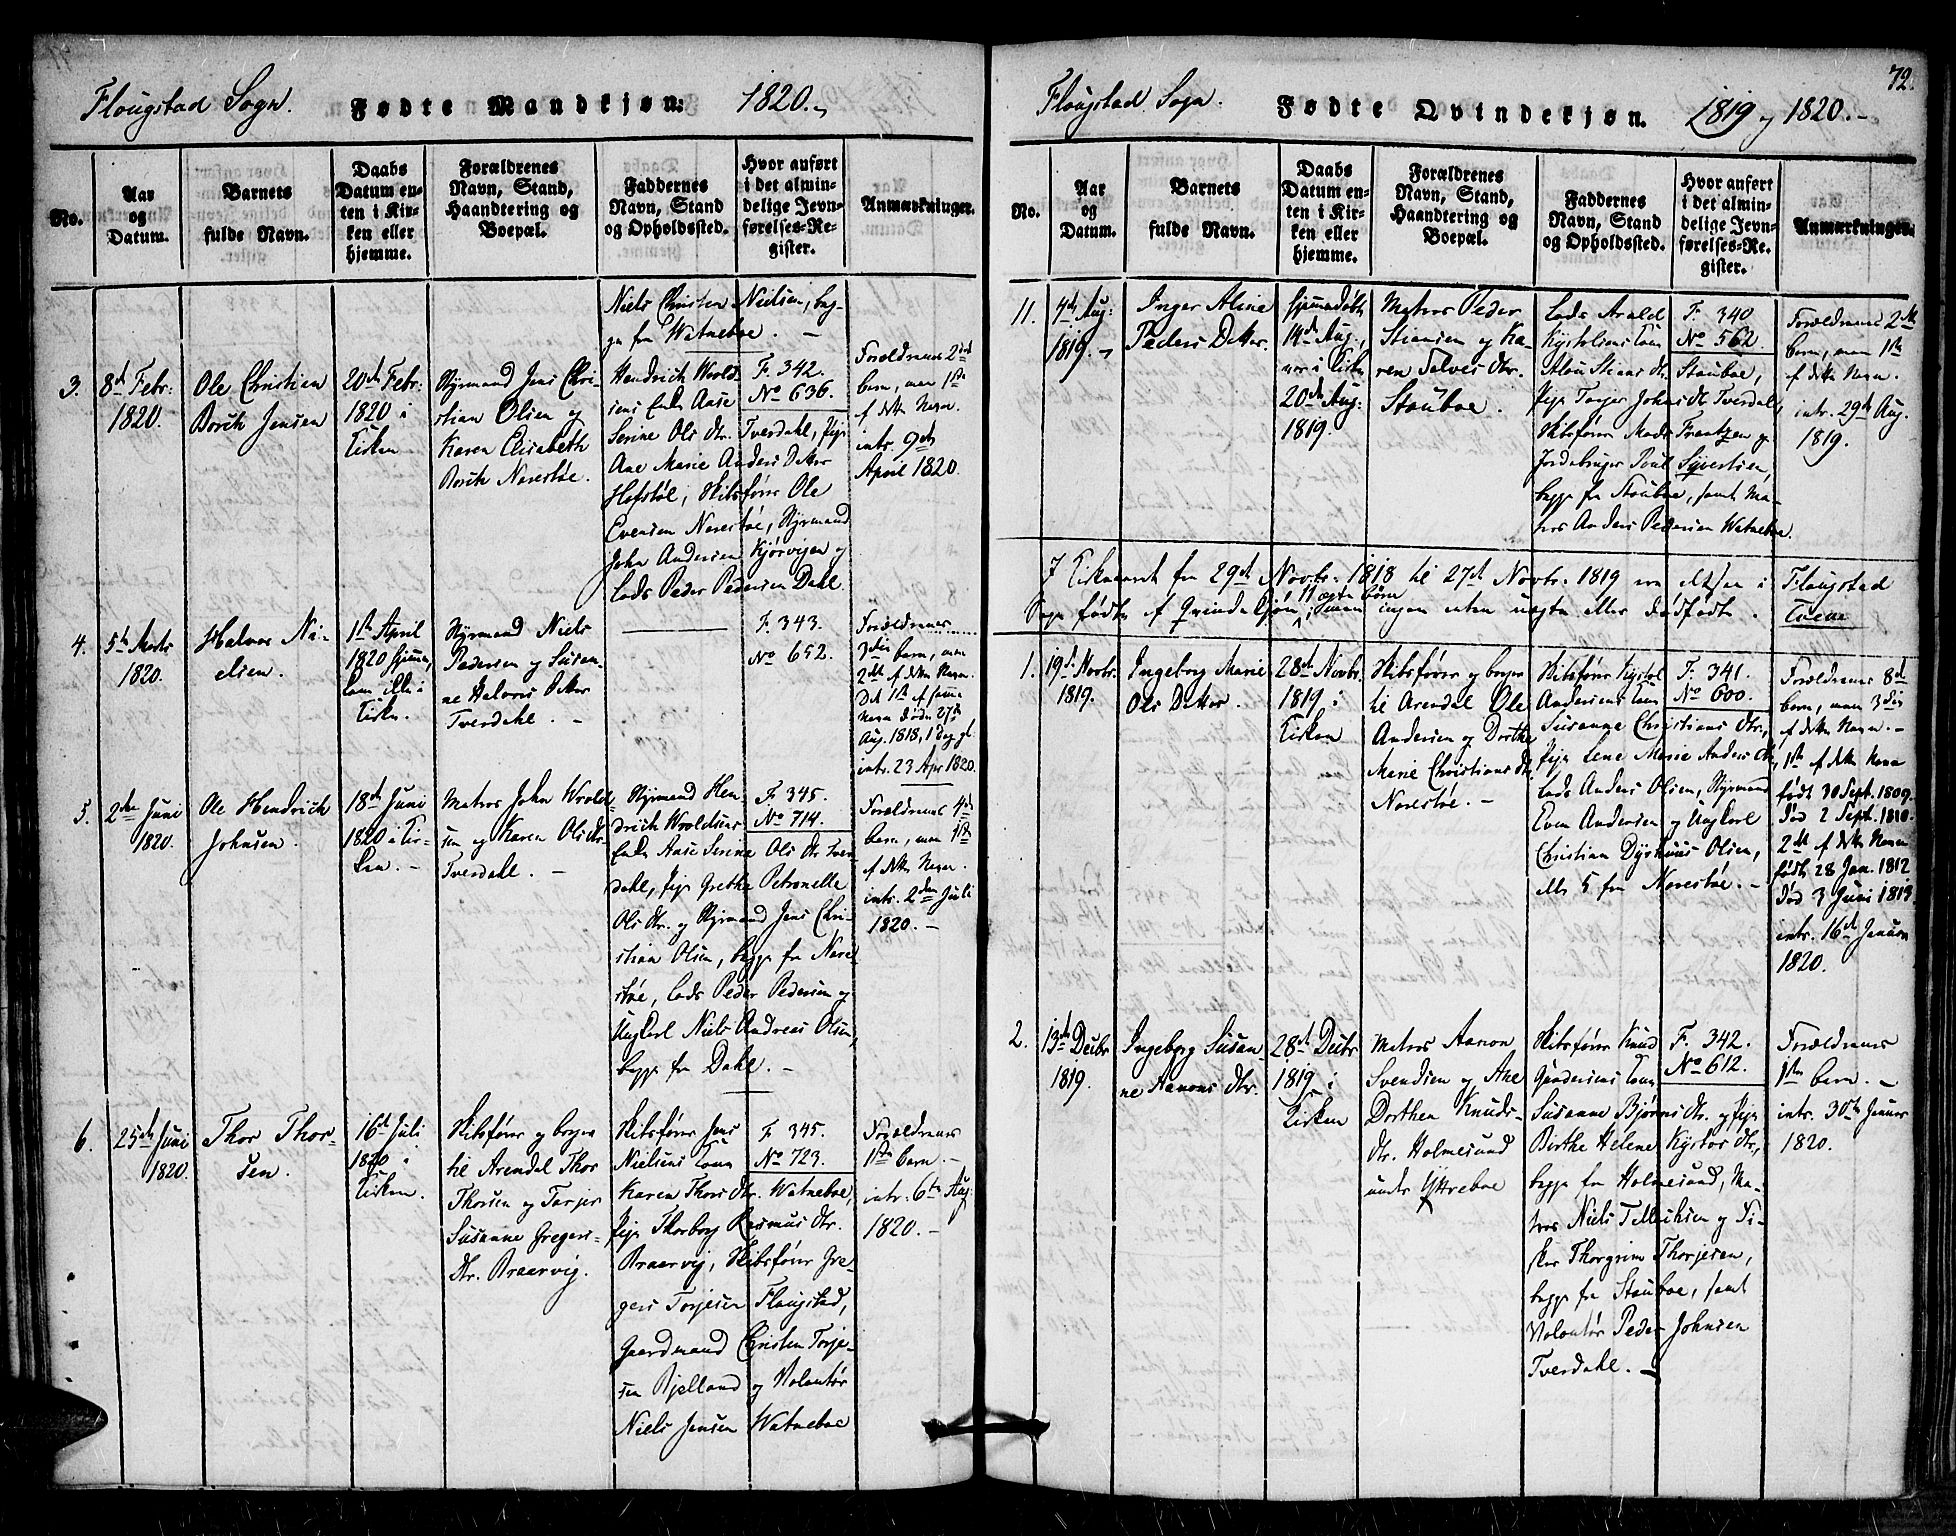 Flougstad Sogn. Fødte Mandkjøn: 1820.
No.
Aar
og
Datum.
Barnets
fulde Navn.
Daabs
Datum en-
ten i Kir-
ken eller
hjemme.
Forældrenes
Navn, Stand,
Haandtering og
Boepæl.
Faddernes
Navn, Stand
og Opholdssted.
Hvor anført
i det almin-
delige Jevn-
førelses-Re-
gister.
Anmærkninger.
Niels Christen Nielsen, beg-
ge fra Watneboe. —
3.
8de Febr:
1820.
Ole Christian
Borith Jensen
20de Febr:
1820 i
Kirken
Styrmand Jens Chri-
stian Olsen og
Karen Elisabeth
Borith Narestøe.
Hendrich Wrold-
sens Enke Aase
Serine Ols dtr. Tverdahl, Pige
Ane Marie Anders Datter
Hofstøl, Skibsfører Ole
Evensen Narestøe, Styrmand
John Andersen Kjørvigen og
Lods Peder Pedersen Dahl.
F. 342.
No 636.
Forældrenes 2det
barn, men 1ste
af dette Navn.
intr. 9de
April 1820.
4.
5te Marts
1820.
Halvor Ni-
elsen.
1ste April
1820 hjemme,
kom ikke i
Kirke.
Styrmand Niels
Pedersen og Susan-
ne Halvors Datter
Tverdahl. —
F. 343.
No 652.
Forældrenes
3die barn, men
2det af dette Navn.
Det 1ste af samme
Navn døde 27de
Aug. 1818, 1 Dag gl.
intr. 23 Apr 1820.
5.
2den Juni
1820.
Ole Hendrich
Johnsen.
18de Juni
1820 i Kir-
ken. —
Matros John Wrold-
sen og Karen Ols dtr.
Tverdahl. —
Styrmand Hen-
drich Wroldsens
Enke Aase Serine Ols dtr. Tver-
dahl, Pige Grethe Petronelle
Ols dtr. og Styrmand Jens Chri-
stian Olsen, begge fra Nare-
støe, Lods Peder Pedersen og
Ungkarl Niels Andreas Olsen,
begge fra Dahl. —
F. 345.
No 714.
Forældrenes 4de
barn, men 1ste
af dette Navn.
intr. 2den Juli
1820. —
6.
25de Juni
1820.
Thor Thor-
sen.
16de Juli
1820 i
Kirken.
Skibsfører og borger
til Arendal Thor
Thorsen og Torjer
Susanne Gregers-
dtr. Braarvig.
Skibsfører Jens
Nielsens Kone
Karen Thors dtr. Watneboe,
Pige Thorborg Rasmus dtr.
Braarvig, Skibsfører Gre-
gers Torjesen Flougstad,
Gaardmand Christen Torje-
sen Bjelland og Volontør
Niels Jensen Watneboe
F. 345.
No 723.
Forældrenes
1ste barn. —
intr. 6te Aug:
1820. —
72.
Flougstad Sogn. Fødte Qvindekjøn. 1819 og 1820. —
No.
Aar
og
Datum.
Barnets
fulde Navn.
Daabs
Datum en-
ten i Kir-
ken eller
hjemme.
Forældrenes
Navn, Stand,
Haandtering og
Boepæl.
Faddernes
Navn, Stand
og Opholdssted.
Hvor anført
i det almin-
delige Jevn-
førelses-Re-
gister.
Anmærkninger.
11.
4de Aug:
1819. —
Inger Aline
Peders Datter.
hjemmedøbt
14de Aug:,
var i Kirken
20de Aug:
1819.
Matros Peder
Stiansen og Ka-
ren Salves dtr.
Stauboe.
Lods Arald
Kystolsens Kone
Alou Stians dtr. Stauboe,
Pige Torjer Johns dtr Tverdal,
Skibsfører Mads Frantzen og
Jordebruger Poul Syvertsen,
begge fra Stauboe, samt Ma-
tros Anders Pedersen Watneboe.
F. 340
No 562.
Forældrenes 2det
barn, men 1ste
af dette Navn.
intr. 29de Aug.
1819.
I Kirkeaaret fra 29de Novbr: 1818 til 27de Novbr: 1819 ere altsaa i Flougstad
Sogn fødte af Qvindekjøn, 11 ægte børn, men ingen enten uægte eller dødfødte. Tveene
1.
19de Novbr:
1819.
Ingeborg Marie
Ols Datter.
28de Novbr:
1819 i
Kirken
Skibsfører og borger
til Arendal Ole
Andersen og Dorthe
Marie Christians dtr.
Narestøe. —
Skibsfører Kystol
Andersens Kone
Susanne Christians dtr.,
Pige Lene Marie Anders dtr,
Lods Anders Olsen, Styrmand
Even Andersen og Ungkarl
Christian Dyrhuus Olsen,
alle 5 fra Narestøe. —
F. 341.
No 600.
Forældrenes 8de
barn, men 3die
af dette Navn. —
1ste af dette Navn
født 30 Sept. 1809.
død 2 Sept. 1810.
2det af dette Navn
født 28 Jan. 1812
død 3 Juni 1813
intr. 16de Januar
1820.
2.
13de Decbr
1819.
Ingeborg Susan-
ne Aarons dtr.
28de Decbr
1819 i
Kirken
Matros Aaron
Svendsen og Ane
Dorthea Knuds-
dtr. Holmesund
under Yttreboe
Skibsfører Knud
Gundersens Kone
Susanne Bjørns dtr. og Pige
Birthe Helene Kystols dtr.,
begge fra Holmesund, Ma-
tros Niels Tellefsen og Fi-
sker Thorgrim Thorjesen,
begge fra Stauboe, samt
Volontør Peder Johnsen
Tverdahl. —
F. 342.
No 612.
Forældrenes
1ste barn. —
intr. 30te Januar
1820.